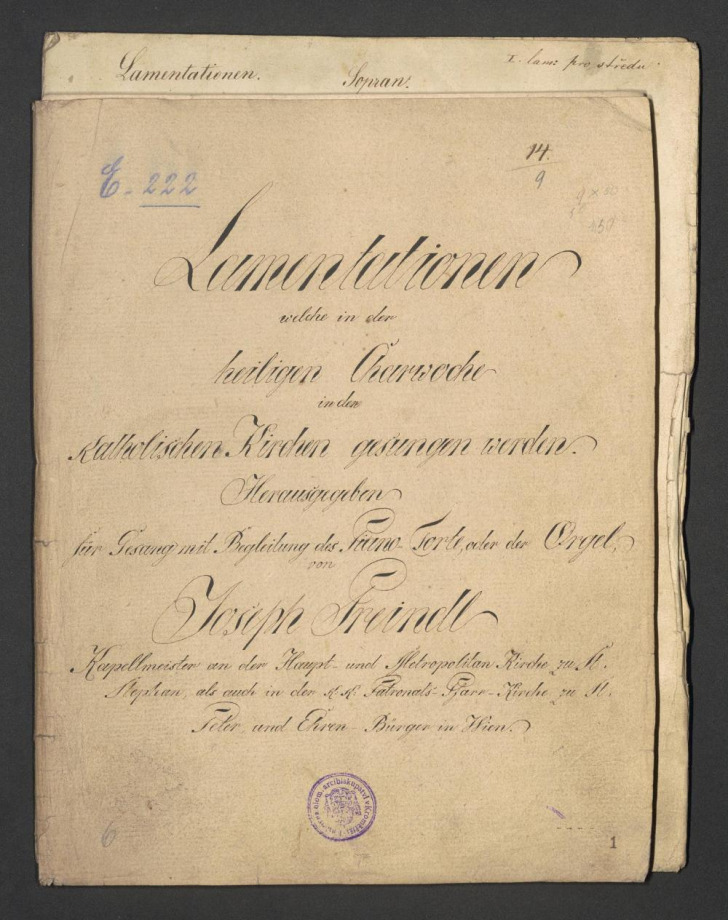 Lamentationen.
Sopran.
I. lam: pro středu
E. 222
14.
9
9 x 50
450
Lamentationen
welche in der
heiligen Charwoche
in den
katholischen Kirchen gesungen werden.
Herausgegeben
für Gesang mit Begleitung des Piano-Forte, oder der Orgel,
von
Joseph Preindl
Kapellmeister an der Haupt- und Metropolitan Kirche zu St.
Stephan, als auch in der K. K. Patronats-Pfarr-Kirche zu St.
Peter, und Ehren-Bürger in Wien.
6
1